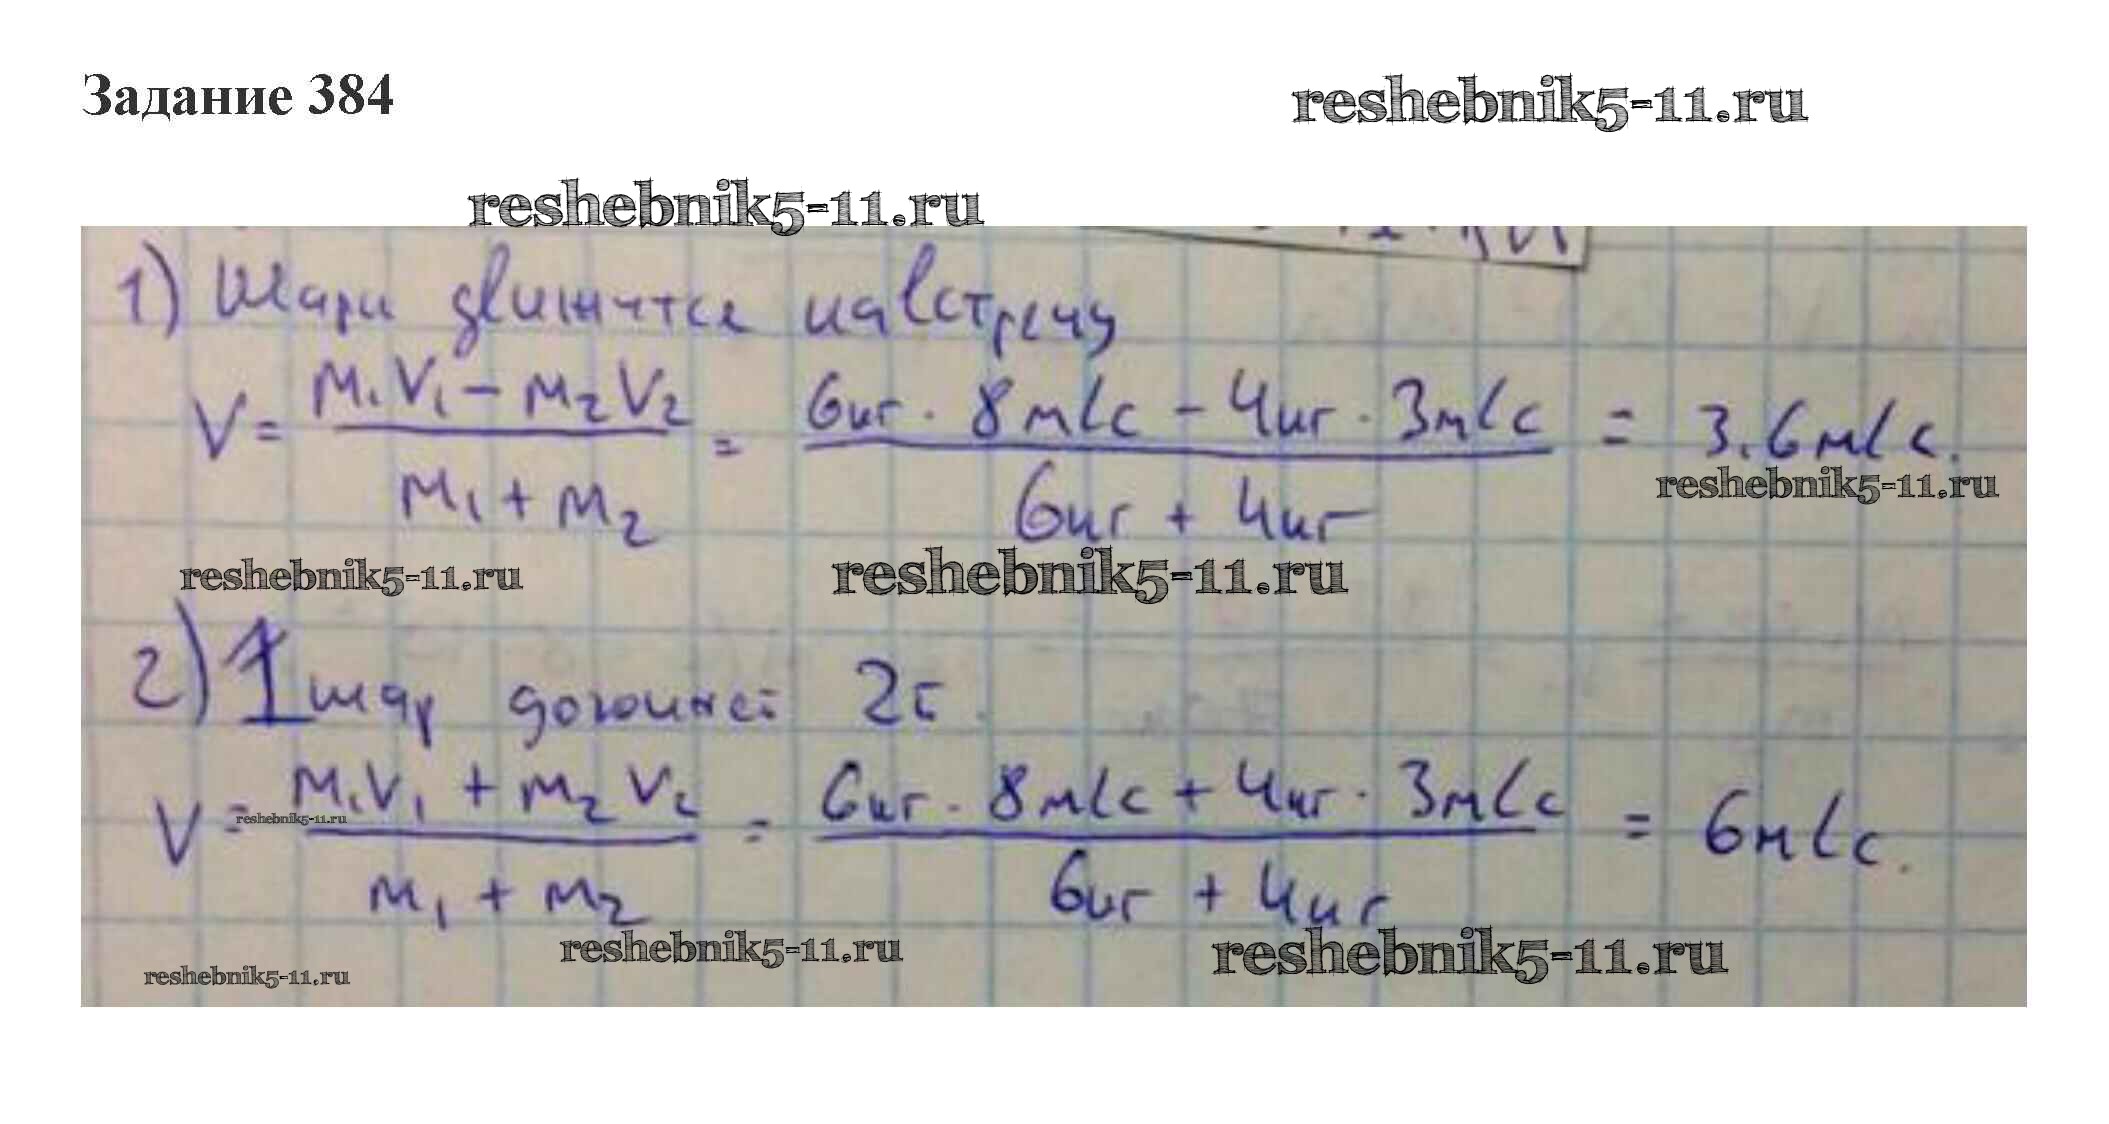 Задание 384
reshebnik5-11.ru
reshebnik5-11.ru
1) Шары движутся навстречу
V = m₁V₁ - m₂V₂ / m₁ + m₂ = 6кг · 8м/с - 4кг · 3м/с / 6кг + 4кг = 3.6м/с.
reshebnik5-11.ru
reshebnik5-11.ru
reshebnik5-11.ru
2) 1 шар догоняет 2й.
V = m₁V₁ + m₂V₂ / m₁ + m₂ = 6кг · 8м/с + 4кг · 3м/с / 6кг + 4кг = 6м/с.
reshebnik5-11.ru
reshebnik5-11.ru
reshebnik5-11.ru
reshebnik5-11.ru